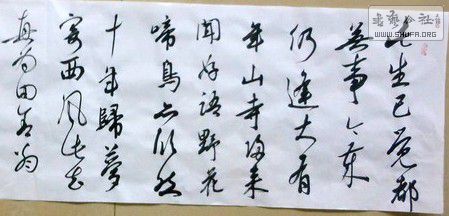 此生已覺都
無事今歲
仍逢大有
年山寺歸來
聞好語野花
啼鳥亦欣然
十年歸夢
寄西風此去
真為田舍翁
書藝公社
WWW.SHUFA.ORG